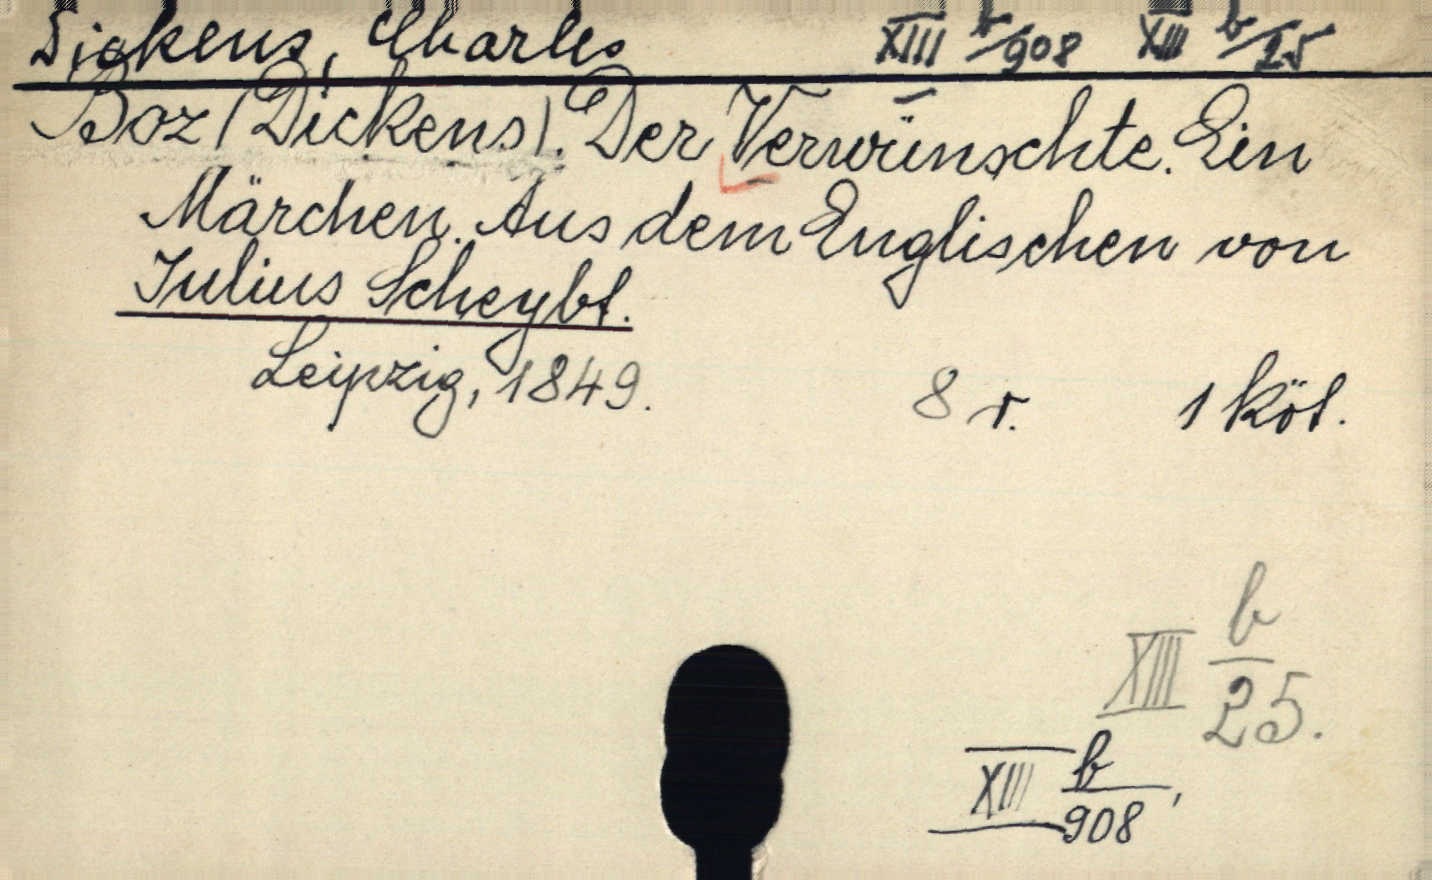 Dickens, Charles XIII b/908 XIII b/25
Boz (Dickens). Der Verwünschte. Ein
Märchen. Aus dem Englischen von
Julius Scheybt.
Leipzig, 1849. 8 r. 1 köt.
XIII b/25.
XIII b/908,